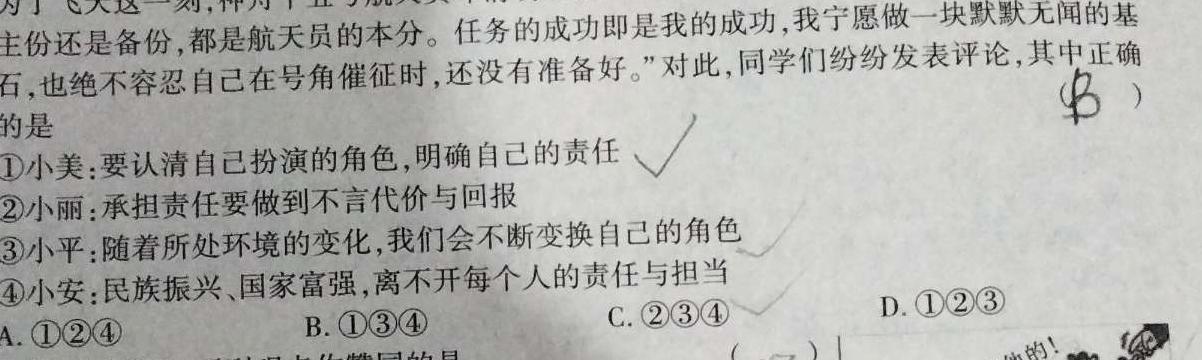 主份还是备份,都是航天员的本分。任务的成功即是我的成功,我宁愿做一块默默无闻的基
石,也绝不容忍自己在号角催征时,还没有准备好。”对此,同学们纷纷发表评论,其中正确
的是 (B)
①小美:要认清自己扮演的角色,明确自己的责任
②小丽:承担责任要做到不言代价与回报
③小平:随着所处环境的变化,我们会不断变换自己的角色
④小安:民族振兴、国家富强,离不开每个人的责任与担当
A. ①②④ B. ①③④ C. ②③④ D. ①②③